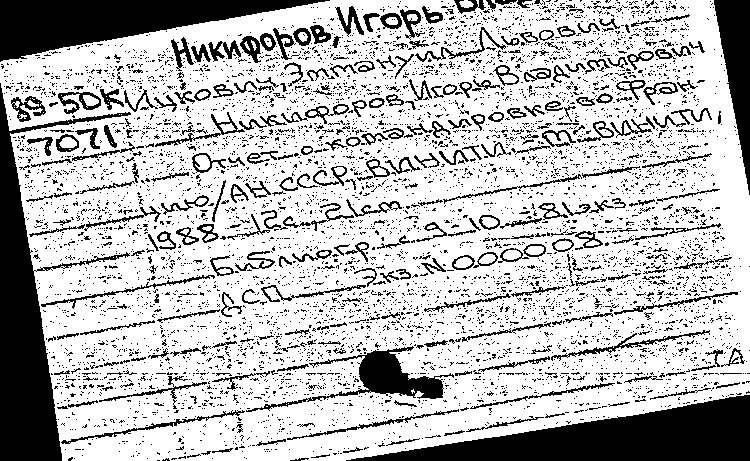 Никифоров, Игорь
89-5DK
7071
Ицкович, Эммануил Львович,
Никифоров, Игорь Владимирович
Отчет о командировке во Фран-
цию / АН СССР, ВИНИТИ. - М.: ВИНИТИ,
1988. - 12с., 21см
Библиогр.: с. 9-10. - 81экз.
ДСП. Экз. N 000008.
ТА